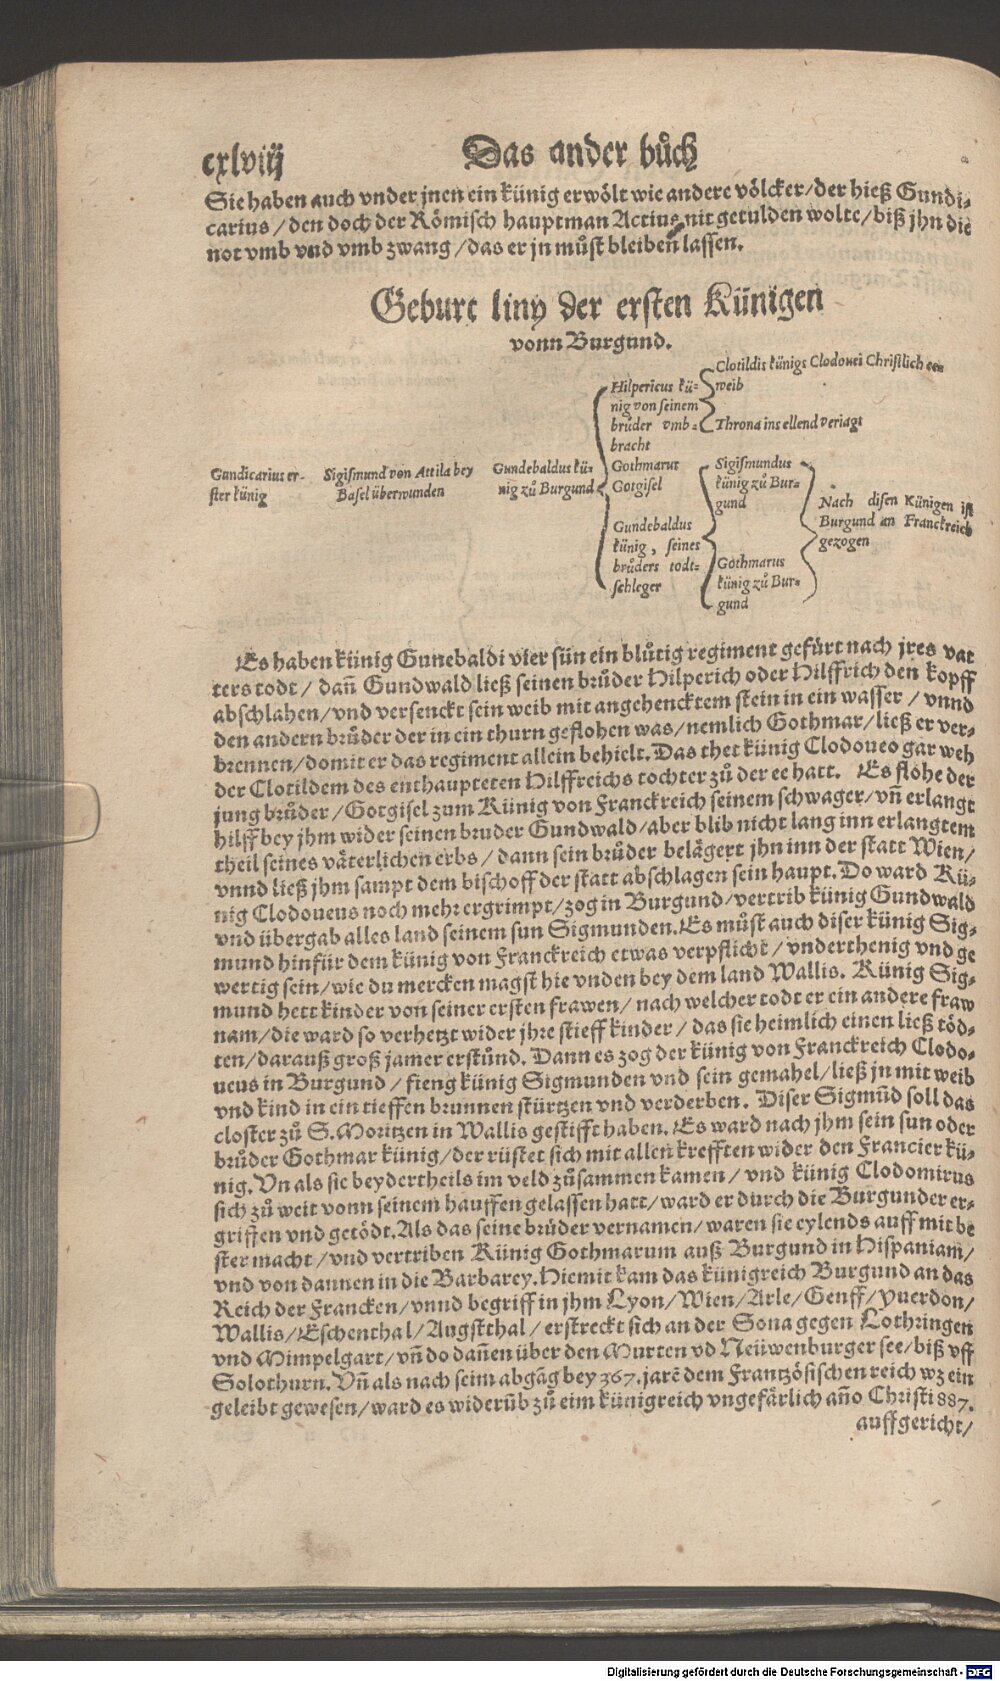 cxlviij
Das ander bůch
Sie haben auch vnder jnen ein künig erwölt wie andere völcker/der hieß Gundi-
carius/den doch der Römisch hauptman Actius nit getulden wolte/biß jhn die
not vmb vnd vmb zwang/das er jn můst bleiben lassen.
Geburt liny der ersten Künigen
vonn Burgund.
Gundicarius er-
ster künig
Sigismund von Attila bey
Basel überwunden
Gundebaldus kü-
nig zů Burgund
Hilpericus kü-
nig von seinem
brůder vmb-
bracht
Gothmarus
Gotgisel
Gundebaldus
künig, seines
brůders todt-
schleger
Clotildis künigs Clodouei Christlich een
weib
Throna ins ellend veriagt
Sigismundus
künig zů Bur-
gund
Gothmarus
künig zů Bur-
gund
Nach disen Künigen ist
Burgund an Franckreich
gezogen
Es haben künig Gunebaldi vier sün ein blůtig regiment gefürt nach jres vat
ters todt/ dañ Gundwald ließ seinen brůder Hilperich oder Hilffrich den kopff
abschlahen/vnd versenckt sein weib mit angehencktem stein in ein wasser/ vnnd
den andern brůder der in ein thurn geflohen was/nemlich Gothmar/ließ er ver-
brennen/domit er das regiment allein behielt. Das thet künig Clodoueo gar weh
der Clotildem des enthaupteten Hilffreichs tochter zů der ee hatt. Es flohe der
jung brůder/Gotgisel zum Künig von Franckreich seinem schwager/vñ erlangt
hilff bey jhm wider seinen bruder Gundwald/aber blib nicht lang inn erlangtem
theil seines väterlichen erbs/ dann sein brůder belägert jhn inn der statt Wien/
vnnd ließ jhm sampt dem bischoff der statt abschlagen sein haupt. Do ward Kü-
nig Clodoueus noch mehr ergrimpt/zog in Burgund/vertrib künig Gundwald
vnd übergab alles land seinem sun Sigmunden. Es můst auch diser künig Sig-
mund hinfür dem künig von Franckreich etwas verpflicht/ vnderthenig vnd ge
wertig sein/wie du mercken magst hie vnden bey dem land Wallis. Künig Sig-
mund hett kinder von seiner ersten frawen/ nach welcher todt er ein andere fraw
nam/die ward so verhetzt wider jhre stieff kinder/ das sie heimlich einen ließ töd-
ten/darauß groß jamer erstůnd. Dann es zog der künig von Franckreich Clodo-
ueus in Burgund/ fieng künig Sigmunden vnd sein gemahel/ließ jn mit weib
vnd kind in ein tieffen brunnen stürtzen vnd verderben. Diser Sigmūd soll das
closter zů S. Moritzen in Wallis gestifft haben. Es ward nach jhm sein sun oder
brůder Gothmar künig/der rüstet sich mit allen krefften wider den Francier kü-
nig. Vn als sie beydertheils im veld zůsammen kamen/ vnd künig Clodomirus
sich zů weit vonn seinem hauffen gelassen hatt/ward er durch die Burgunder er-
griffen vnd getödt. Als das seine brüder vernamen/waren sie eylends auff mit be
ster macht/vnd vertriben Künig Gothmarum auß Burgund in Hispaniam/
vnd von dannen in die Barbarey. Hiemit kam das künigreich Burgund an das
Reich der Francken/vnnd begriff in jhm Lyon/Wien/Arle/Genff/Yuerdon/
Wallis/Eschenthal/Augstthal/ erstreckt sich an der Sona gegen Lothringen
vnd Mimpelgart/vñ do dañen über den Murten vd Neüwenburger see/biß vff
Solothurn. Vñ als nach seim abgāg bey 367. jarē dem Frantzösischen reich wz ein
geleibt gewesen/ward es widerūb zů eim künigreich vngefärlich año Christi 887.
auffgericht/
Digitalisierung gefördert durch die Deutsche Forschungsgemeinschaft - DFG